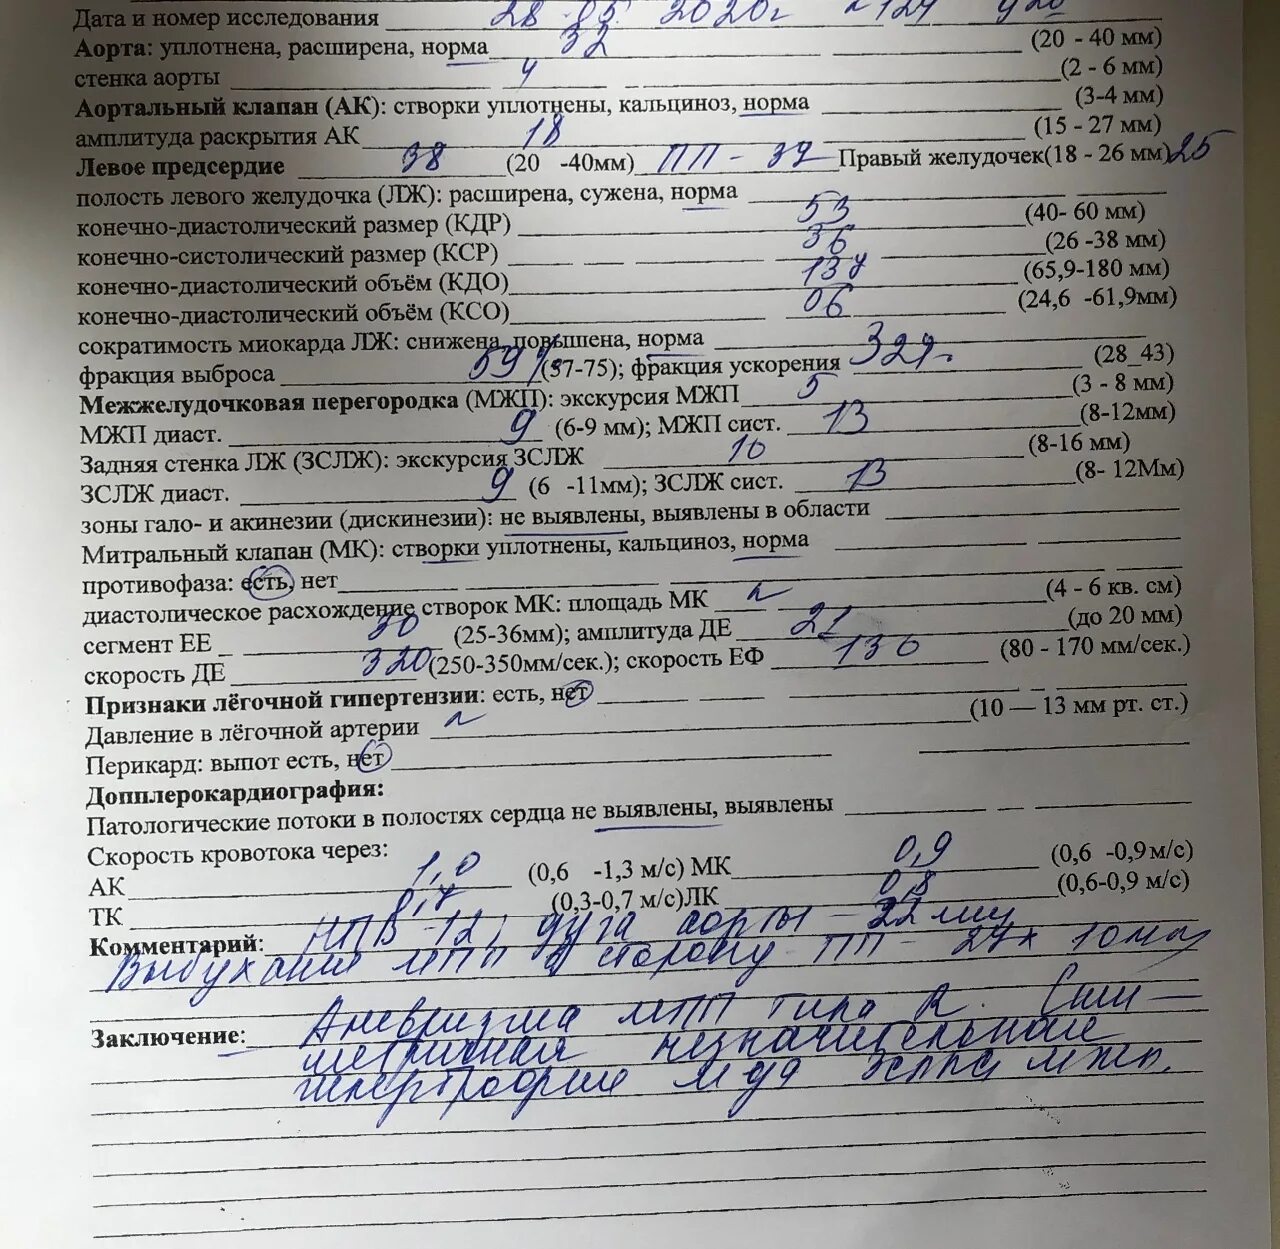 Дата и номер исследования 28.05.2020г №124
Аорта: уплотнена, расширена, норма 32 (20 - 40 мм)
стенка аорты 4 (2 - 6 мм)
Аортальный клапан (АК): створки уплотнены, кальциноз, норма (3-4 мм)
амплитуда раскрытия АК 18 (15 - 27 мм)
Левое предсердие 38 (20 -40мм) ПП - 37 Правый желудочек(18 - 26 мм) 25
полость левого желудочка (ЛЖ): расширена, сужена, норма
конечно-диастолический размер (КДР) 53 (40- 60 мм)
конечно-систолический размер (КСР) 36 (26 -38 мм)
конечно-диастолический объём (КДО) 137 (65,9-180 мм)
конечно-диастолический объём (КСО) 06 (24,6 -61,9мм)
сократимость миокарда ЛЖ: снижена, повышена, норма
фракция выброса 59% (57-75); фракция ускорения 32%. (28_43)
Межжелудочковая перегородка (МЖП): экскурсия МЖП 5 (3 - 8 мм)
МЖП диаст. 9 (6-9 мм); МЖП сист. 13 (8-12мм)
Задняя стенка ЛЖ (ЗСЛЖ): экскурсия ЗСЛЖ 10 (8-16 мм)
ЗСЛЖ диаст. 9 (6 -11мм); ЗСЛЖ сист. 13 (8- 12Мм)
зоны гало- и акинезии (дискинезии): не выявлены, выявлены в области
Митральный клапан (МК): створки уплотнены, кальциноз, норма
противофаза: есть, нет
диастолическое расхождение створок МК: площадь МК (4 - 6 кв. см)
сегмент ЕЕ 30 (25-36мм); амплитуда ДЕ 21 (до 20 мм)
скорость ДЕ 320 (250-350мм/сек.); скорость ЕФ 130 (80 - 170 мм/сек.)
Признаки лёгочной гипертензии: есть, нет
Давление в лёгочной артерии (10 — 13 мм рт. ст.)
Перикард: выпот есть, нет
Допплерокардиография:
Патологические потоки в полостях сердца не выявлены, выявлены
Скорость кровотока через:
АК 1,0 (0,6 -1,3 м/с) МК 0,9 (0,6 -0,9м/с)
ТК 0,7 (0,3-0,7 м/с)ЛК 0,8 (0,6-0,9 м/с)
Комментарий: НПВ-12, дуга аорты - 22 мм
Выбухание МПП в сторону ПП - 27 х 10мм
Заключение: Аневризма МПП типа R. Сим-
метричная незначительная
гипертрофия ЗСЛЖ, МЖП.